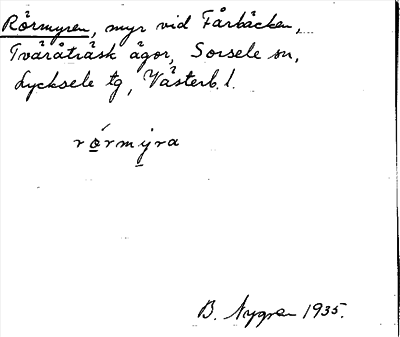 Rörmyren, myr vid Fårbäcken,
Tvåråträsk ägor, Sorsele sn,
Lycksele tg, Västerb. l.
rörmýra
B. Nygren 1935.